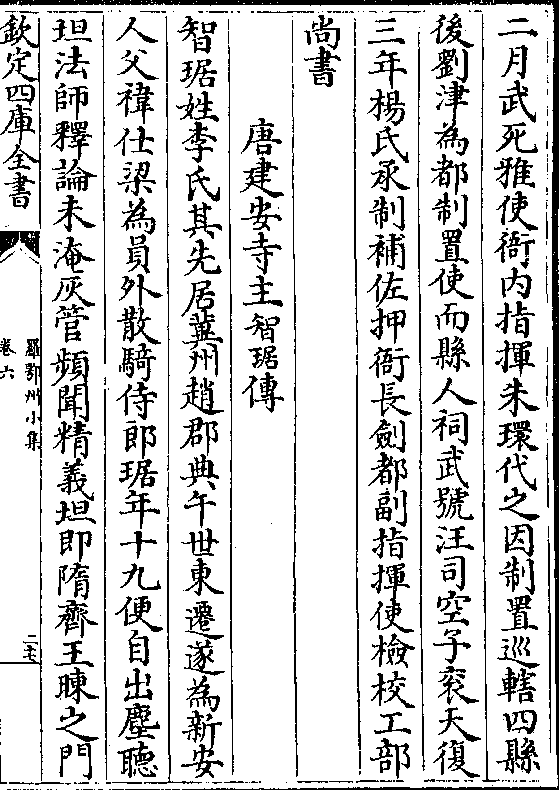 二月武死雅使衙内指揮朱環代之因制置巡轄四縣
後劉津為都制置使而縣人祠武號汪司空子衮天復
三年楊氏承制補佐押衙長劍都副指揮使檢校工部
尚書
唐建安寺主智琚傳
智琚姓李氏其先居冀州趙郡典午世東遷遂為新安
人父禕仕梁為員外散騎侍郎琚年十九便自出塵聽
坦法師釋論未淹灰管頻聞精義坦即隋齊王暕之門
欽定四庫全書
羅鄂州小集
卷六
二七